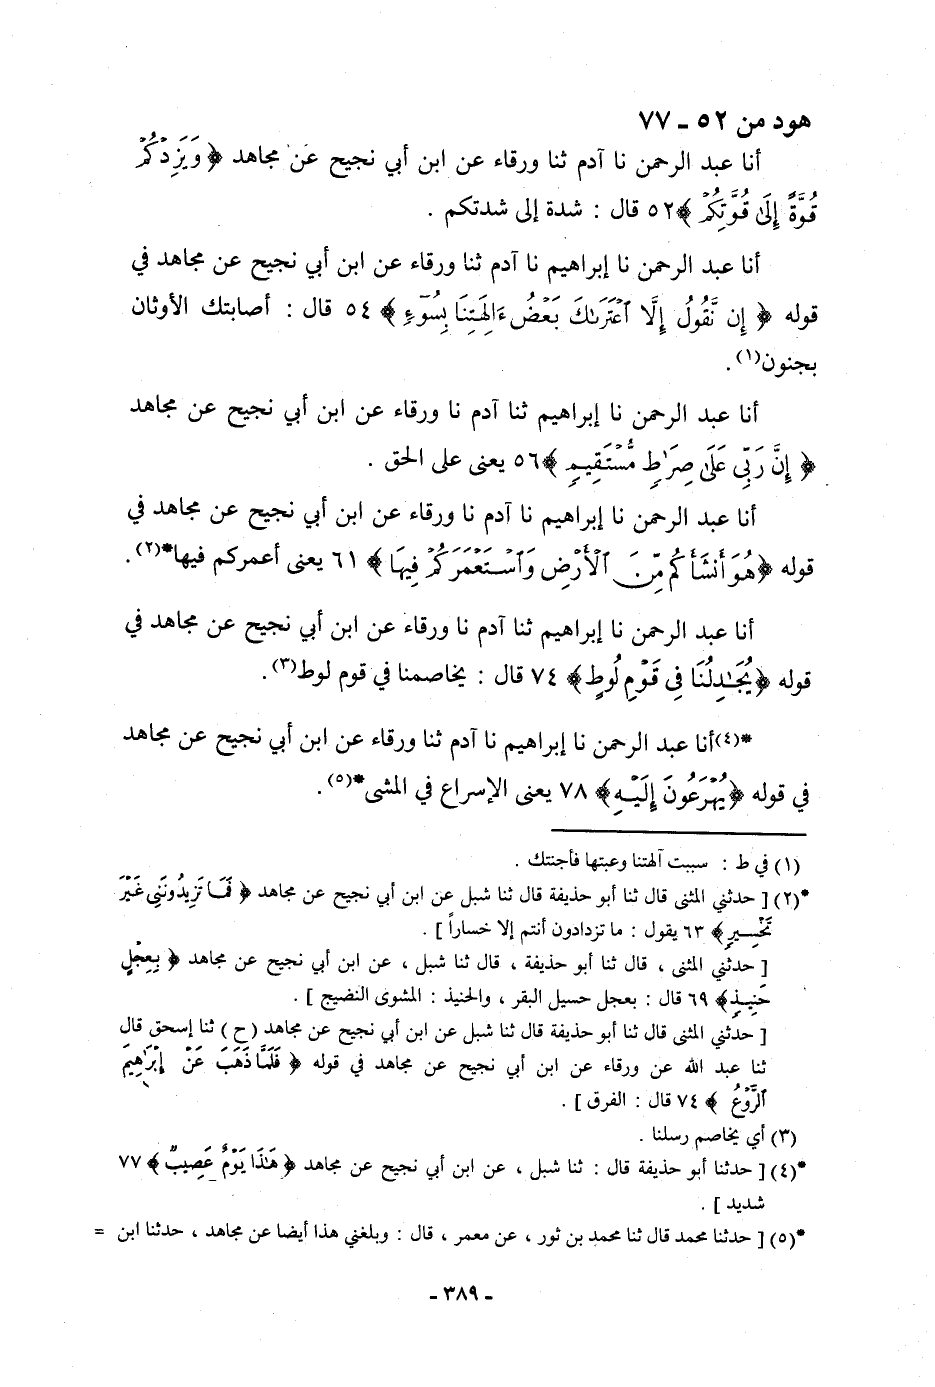 هود من ٥٢ ـ ٧٧
أنا عبد الرحمن نا آدم ثنا ورقاء عن ابن أبي نجيح عن مجاهد ﴿ وَيَزِدْكُمْ
قُوَّةً إِلَىٰ قُوَّتِكُمْ ﴾٥٢ قال : شدة إلى شدتكم .
أنا عبد الرحمن نا إبراهيم نا آدم ثنا ورقاء عن ابن أبي نجيح عن مجاهد في
قوله ﴿ إِن نَّقُولُ إِلَّا ٱعْتَرَىٰكَ بَعْضُ ءَالِهَتِنَا بِسُوٓءٍ ﴾ ٥٤ قال : أصابتك الأوثان
بجنون(١) .
أنا عبد الرحمن نا إبراهيم ثنا آدم نا ورقاء عن ابن أبي نجيح عن مجاهد
﴿ إِنَّ رَبِّى عَلَىٰ صِرَٰطٍ مُّسْتَقِيمٍ ﴾٥٦ يعنى على الحق .
أنا عبد الرحمن نا إبراهيم نا آدم نا ورقاء عن ابن أبي نجيح عن مجاهد في
قوله ﴿هُوَ أَنشَأَكُم مِّنَ ٱلْأَرْضِ وَٱسْتَعْمَرَكُمْ فِيهَا ﴾ ٦١ يعنى أعمركم فيها*(٢).
أنا عبد الرحمن نا إبراهيم ثنا آدم نا ورقاء عن ابن أبي نجيح عن مجاهد في
قوله ﴿يُجَٰدِلُنَا فِى قَوْمِ لُوطٍ﴾ ٧٤ قال : يخاصمنا في قوم لوط(٣).
*(٤)أنا عبد الرحمن نا إبراهيم نا آدم ثنا ورقاء عن ابن أبي نجيح عن مجاهد
في قوله ﴿يُهْرَعُونَ إِلَيْهِ﴾ ٧٨ يعنى الإسراع في المشى*(٥).
(١) في ط : سببت آلهتنا وعبتها فأجنتك .
*(٢) [ حدثني المثنى قال ثنا أبو حذيفة قال ثنا شبل عن ابن أبي نجيح عن مجاهد ﴿ فَمَا تَزِيدُونَنِى غَيْرَ
تَخْسِيرٍ﴾ ٦٣ يقول : ما تزدادون أنتم إلا خساراً ] .
[ حدثني المثنى ، قال ثنا أبو حذيفة ، قال ثنا شبل ، عن ابن أبي نجيح عن مجاهد ﴿ بِعِجْلٍ
حَنِيذٍ﴾ ٦٩ قال : بعجل حسيل البقر ، والحنيذ : المشوى النضيج ] .
[ حدثني المثنى قال ثنا أبو حذيفة قال ثنا شبل عن ابن أبي نجيح عن مجاهد ( ح ) ثنا إسحق قال
ثنا عبد الله عن ورقاء عن ابن أبي نجيح عن مجاهد في قوله ﴿ فَلَمَّا ذَهَبَ عَنْ إِبْرَٰهِيمَ
ٱلرَّوْعُ ﴾ ٧٤ قال : الفرق ] .
(٣) أي يخاصم رسلنا .
*(٤) [ حدثنا أبو حذيفة قال : ثنا شبل ، عن ابن أبي نجيح عن مجاهد ﴿ هَٰذَا يَوْمٌ عَصِيبٌ ﴾ ٧٧
شديد ] .
*(٥) [ حدثنا محمد قال ثنا محمد بن ثور ، عن معمر ، قال : وبلغني هذا أيضا عن مجاهد ، حدثنا ابن =
ـ ٣٨٩ ـ